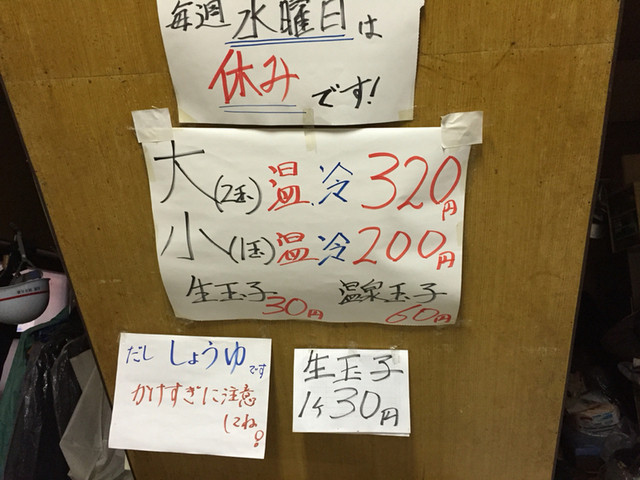 毎週水曜日は
休みです!
大(2玉)温.冷320円
小(1玉)温冷200円
生玉子30円
温泉玉子60円
だししょうゆです
かけすぎに注意
してね!
生玉子
1ヶ30円